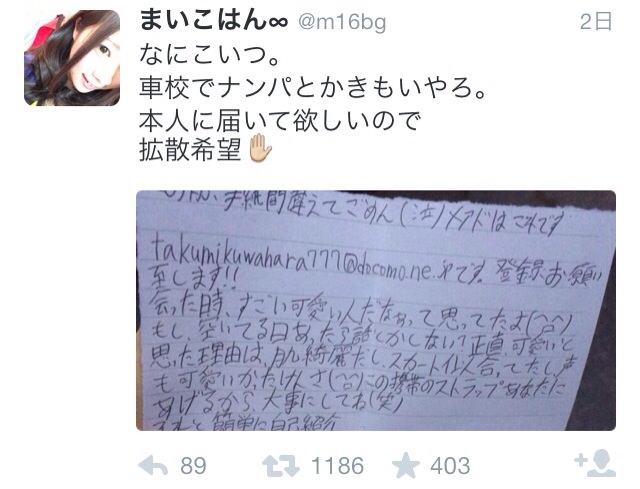 まいこはん∞ @m16bg 2日
なにこいつ。
車校でナンパとかきもいやろ。
本人に届いて欲しいので
拡散希望✋
手紙間違えてごめん(泣)メアドはこれです
takumikuwahara777@docomo.ne.jpです。登録お願い
至します!!
会った時、すごい可愛い人だなぁって思ってたよ(^o^)
もし、空いてる日あったら話とかしない?正直、可愛いと
思った理由は、肌綺麗だし、スカート似合ってたし、声
も可愛いかったけんさ(^o^)この携帯のストラップあなたに
あげるから、大事にしてね(笑)
簡単に自己紹介
89 1186 403